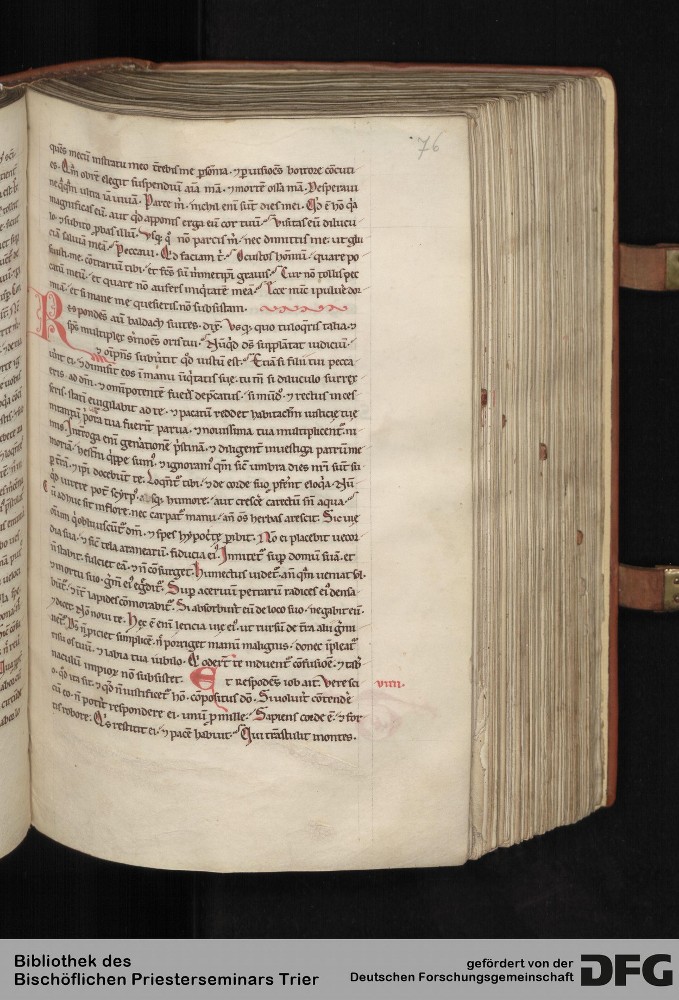 76
ques mecū
es. Qm̄ obrē elegit suspendiū aīa m̄a. ⁊ mortē ossa m̄a. Desperaui
ne q̄q̄m ultra iā uiuā. Parce m̄. nichil enī sūt dies mei. Qd ē hō q̄a
magnificas eū. aut qd apponis erga eū cor tuū. Visitas eū dilucu
lo ⁊ subito ꝓbas illū. Vsq; q̄ nō parcis m̄. nec dimittis me. ut glu
ciā saliuā meā. Peccaui. Qd faciam t̄. O custos hōinū. quare po
suisti me contrariū tibi. ⁊ fc̄s sū m̄metip̄i grauis. Cur nō tollis pec
catū meū. et quare nō aufers iniq̄tatē meā. Ecce nūc ī puluē dor
miā. et si mane me quesieris nō subsistam.
Respondēs aū baldach suites. dix̄. Vsq; quo loq̄ris talia. ⁊
sp̄s multiplex sermōēs oris tui. Nūqd dс̄ supplātat iudiciū.
⁊ oīpn̄s subuertit qd iustū est. Etiā si filii tui pecca
uint ei. ⁊ dimisit eos ī manu iniq̄tatis sue. tu m̄ si diluculo surrex
eris ad dm̄. ⁊ om̄ipotentē fueris dep̄catus. si mūd⁹ ⁊ rectus inces
seris. statī euigilabit ad te. ⁊ pacatū reddet habitaclm̄ iusticie tue
intantū
nis. Intrroga enī generationē p̄stinā. ⁊ diligent̄ inuestiga patrū me
moriā. hest̄ni q̄ppe sum⁹. ⁊ ignoram⁹ qm̄ sic̄ umbra dies nr̄i sūt su
ꝑ t̄rā. ⁊ ip̄i docebūt te. Loq̄nt̄ tibi. ⁊ de corde suo ꝓferēt eloq̄a. Nū
qd uirere pot̄ scyrp⁹ absq; humore. aut crescē carectū sn̄ aqua.
Cū adhuc sit in flore. nec carpat̄ manu. an̄ om̄s herbas arescit. Sic uie
oīum q̄ obliuiscūt̄ dm̄. ⁊ spes hypocrite ꝑibit. Nō ei placebit uecor
dia sua. ⁊ sic̄ tela aranearū fiducia ei⁹. Innitet̄ sup domū suā. et
n̄ stabit. fulciet eā. ⁊ n̄ cōsurget. Humectus uidet̄ an̄ q̄m ueniat sol.
⁊ in ortu suo gm̄ ei⁹ egdit̄. Sup aceruū petrarū radices ei⁹ densa
būt̄. ⁊ int̄ lapides cōmorabit̄. Si absorbuit eū de loco suo. negabit eū.
⁊ dicet. Nō noui te. Hec ē enī leticia uie ei⁹. ut rursū de t̄ra alii gm̄i
nent̄. Ds̄ n̄ ꝓiciet simplicē. n̄ porriget manū malignis. donec ipleat̄
risu os tuū. ⁊ labia tua iubilo. Q oderūt te induent̄ cōfusiōē. ⁊ tab̄
naculū impiorꝝ nō subsistet. Et respōdēs iob ait. Vere sci
viiii.
o. qd ita sit. ⁊ qd n̄ iustificet̄ hō. cōpositus dō. Si uoluit cōtendē
cū eo. n̄ potit̄ respondere ei. unū ꝑ mille. Sapiens corde ē. ⁊ for
tis robore. Qis restitit ei. ⁊ pacē habuit. Qui trāstulit montes.
Bibliothek des
Bischöflichen Priesterseminars Trier
gefördert von der
Deutschen Forschungsgemeinschaft
DFG